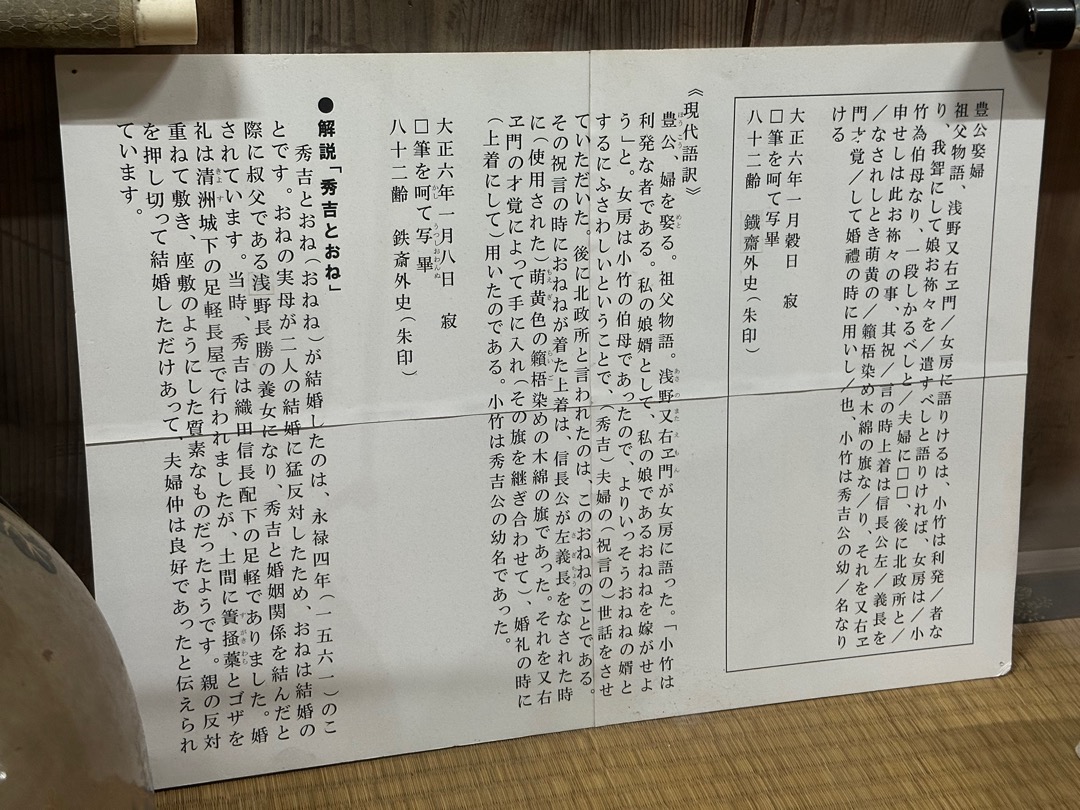 豊公娶婦
祖父物語、浅野又右ヱ門／女房に語りけるは、小竹は利発／者な
り、我聟にして娘お祢々を／遣すべしと語りければ、女房は／小
竹為伯母なり、一段しかるべしと／夫婦に□□、後に北政所と／
申せしは此お祢々の事、其祝／言の時上着は信長公左／義長を
／なされしとき萌黄の／籟梧染め木綿の旗な／り、それを又右ヱ
門才覚／して婚禮の時に用いし／也、小竹は秀吉公の幼／名なり
ける
大正六年一月穀日　寂
□筆を呵て写畢
八十二齢　鐡齋外史（朱印）
《現代語訳》
豊公、婦を娶る。祖父物語。浅野又右ヱ門が女房に語った。「小竹は
利発な者である。私の娘婿として、私の娘であるおねねを嫁がせよ
う」と。女房は小竹の伯母であったので、よりいっそうおねねの婿と
するにふさわしいということで、（秀吉）夫婦の（祝言の）世話をさせ
ていただいた。後に北政所と言われたのは、このおねねのことである。
その祝言の時におねねが着た上着は、信長公が左義長をなされた時
に（使用された）萌黄色の籟梧染めの木綿の旗であった。それを又右
ヱ門の才覚によって手に入れ（その旗を継ぎ合わせて）、婚礼の時に
（上着にして）用いたのである。小竹は秀吉公の幼名であった。
大正六年一月八日　寂
□筆を呵て写畢
八十二齢　鉄斎外史（朱印）
●解説「秀吉とおね」
秀吉とおね（おねね）が結婚したのは、永禄四年（一五六一）のこ
とです。おねの実母が二人の結婚に猛反対したため、おねは結婚の
際に叔父である浅野長勝の養女になり、秀吉と婚姻関係を結んだと
されています。当時、秀吉は織田信長配下の足軽でありました。婚
礼は清洲城下の足軽長屋で行われましたが、土間に簀掻藁とゴザを
重ねて敷き、座敷のようにした質素なものだったようです。親の反対
を押し切って結婚しただけあって、夫婦仲は良好であったと伝えられ
ています。